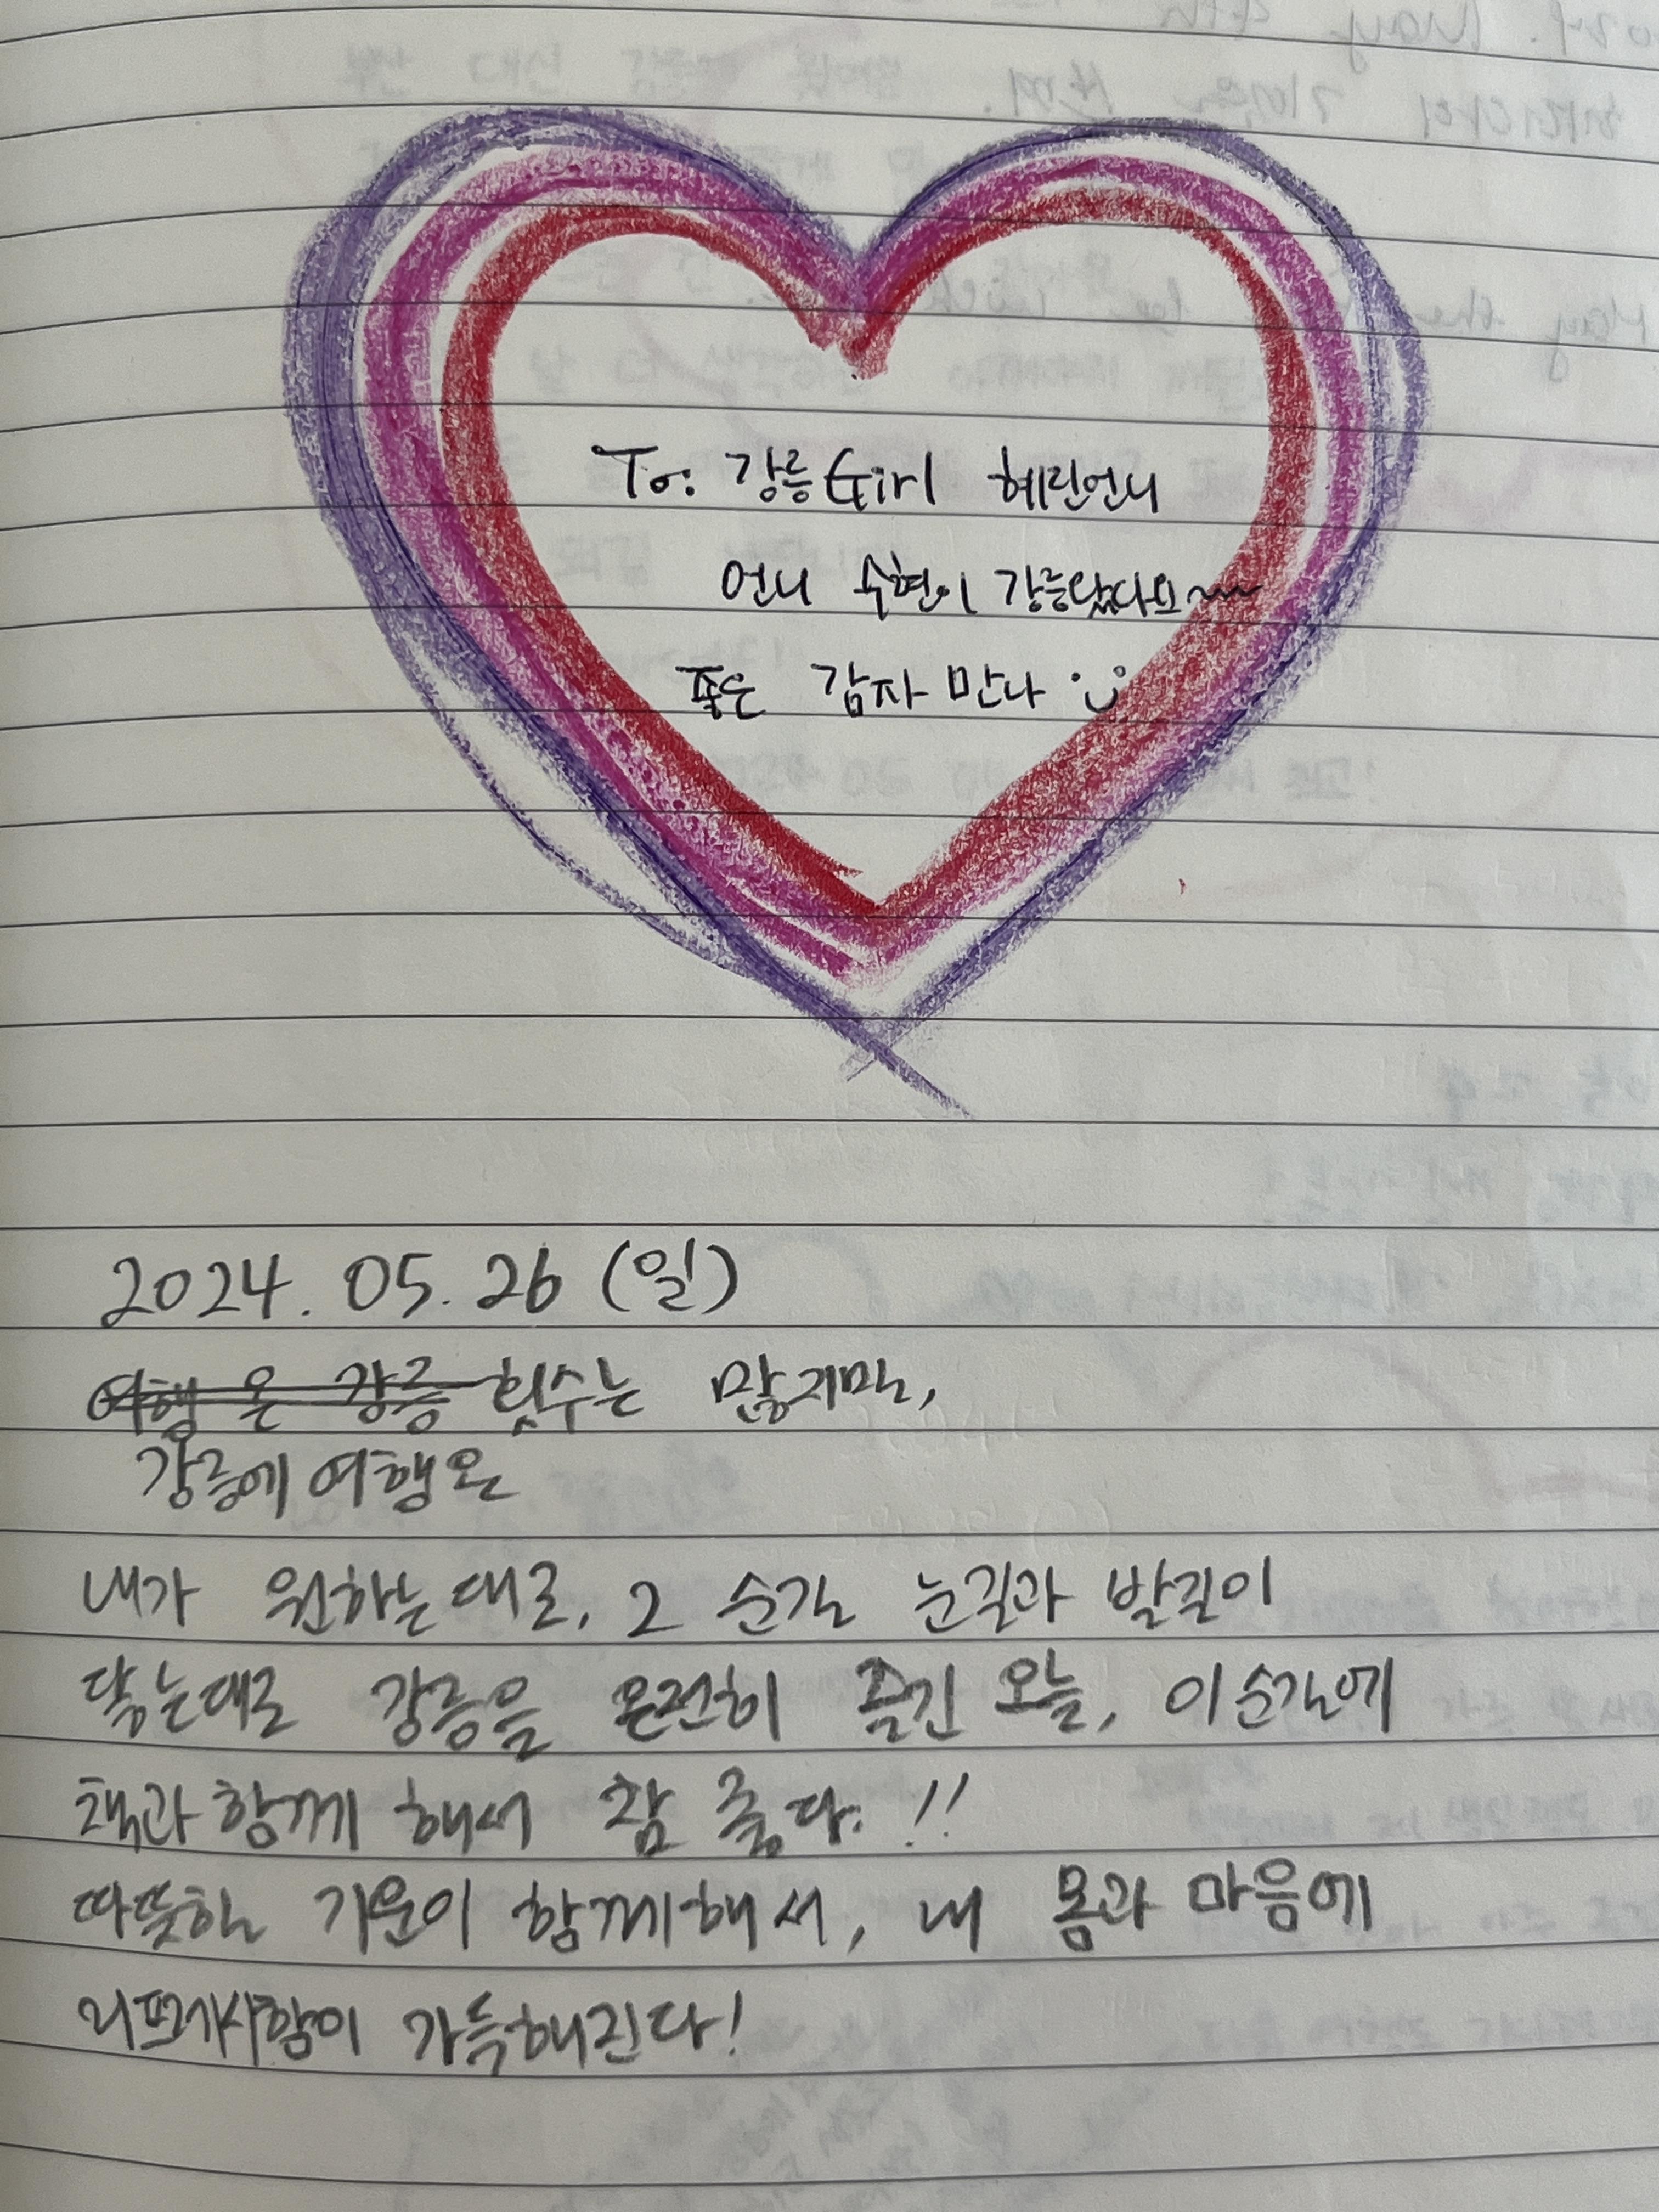 To. 강릉Girl 혜린언니
언니 숙현이 강릉왔다요~~~
좋은 감자 만나
2024. 05. 26 (일)
여행 온 강릉 횟수는 많지만,
강릉에 여행온
내가 원하는대로, 그 순간 눈길과 발길이
닿는대로 강릉을 온전히 즐긴 오늘, 이 순간에
책과 함께 해서 참 좋다. !!
따뜻한 기운이 함께해서, 내 몸과 마음에
리프레시함이 가득해진다!